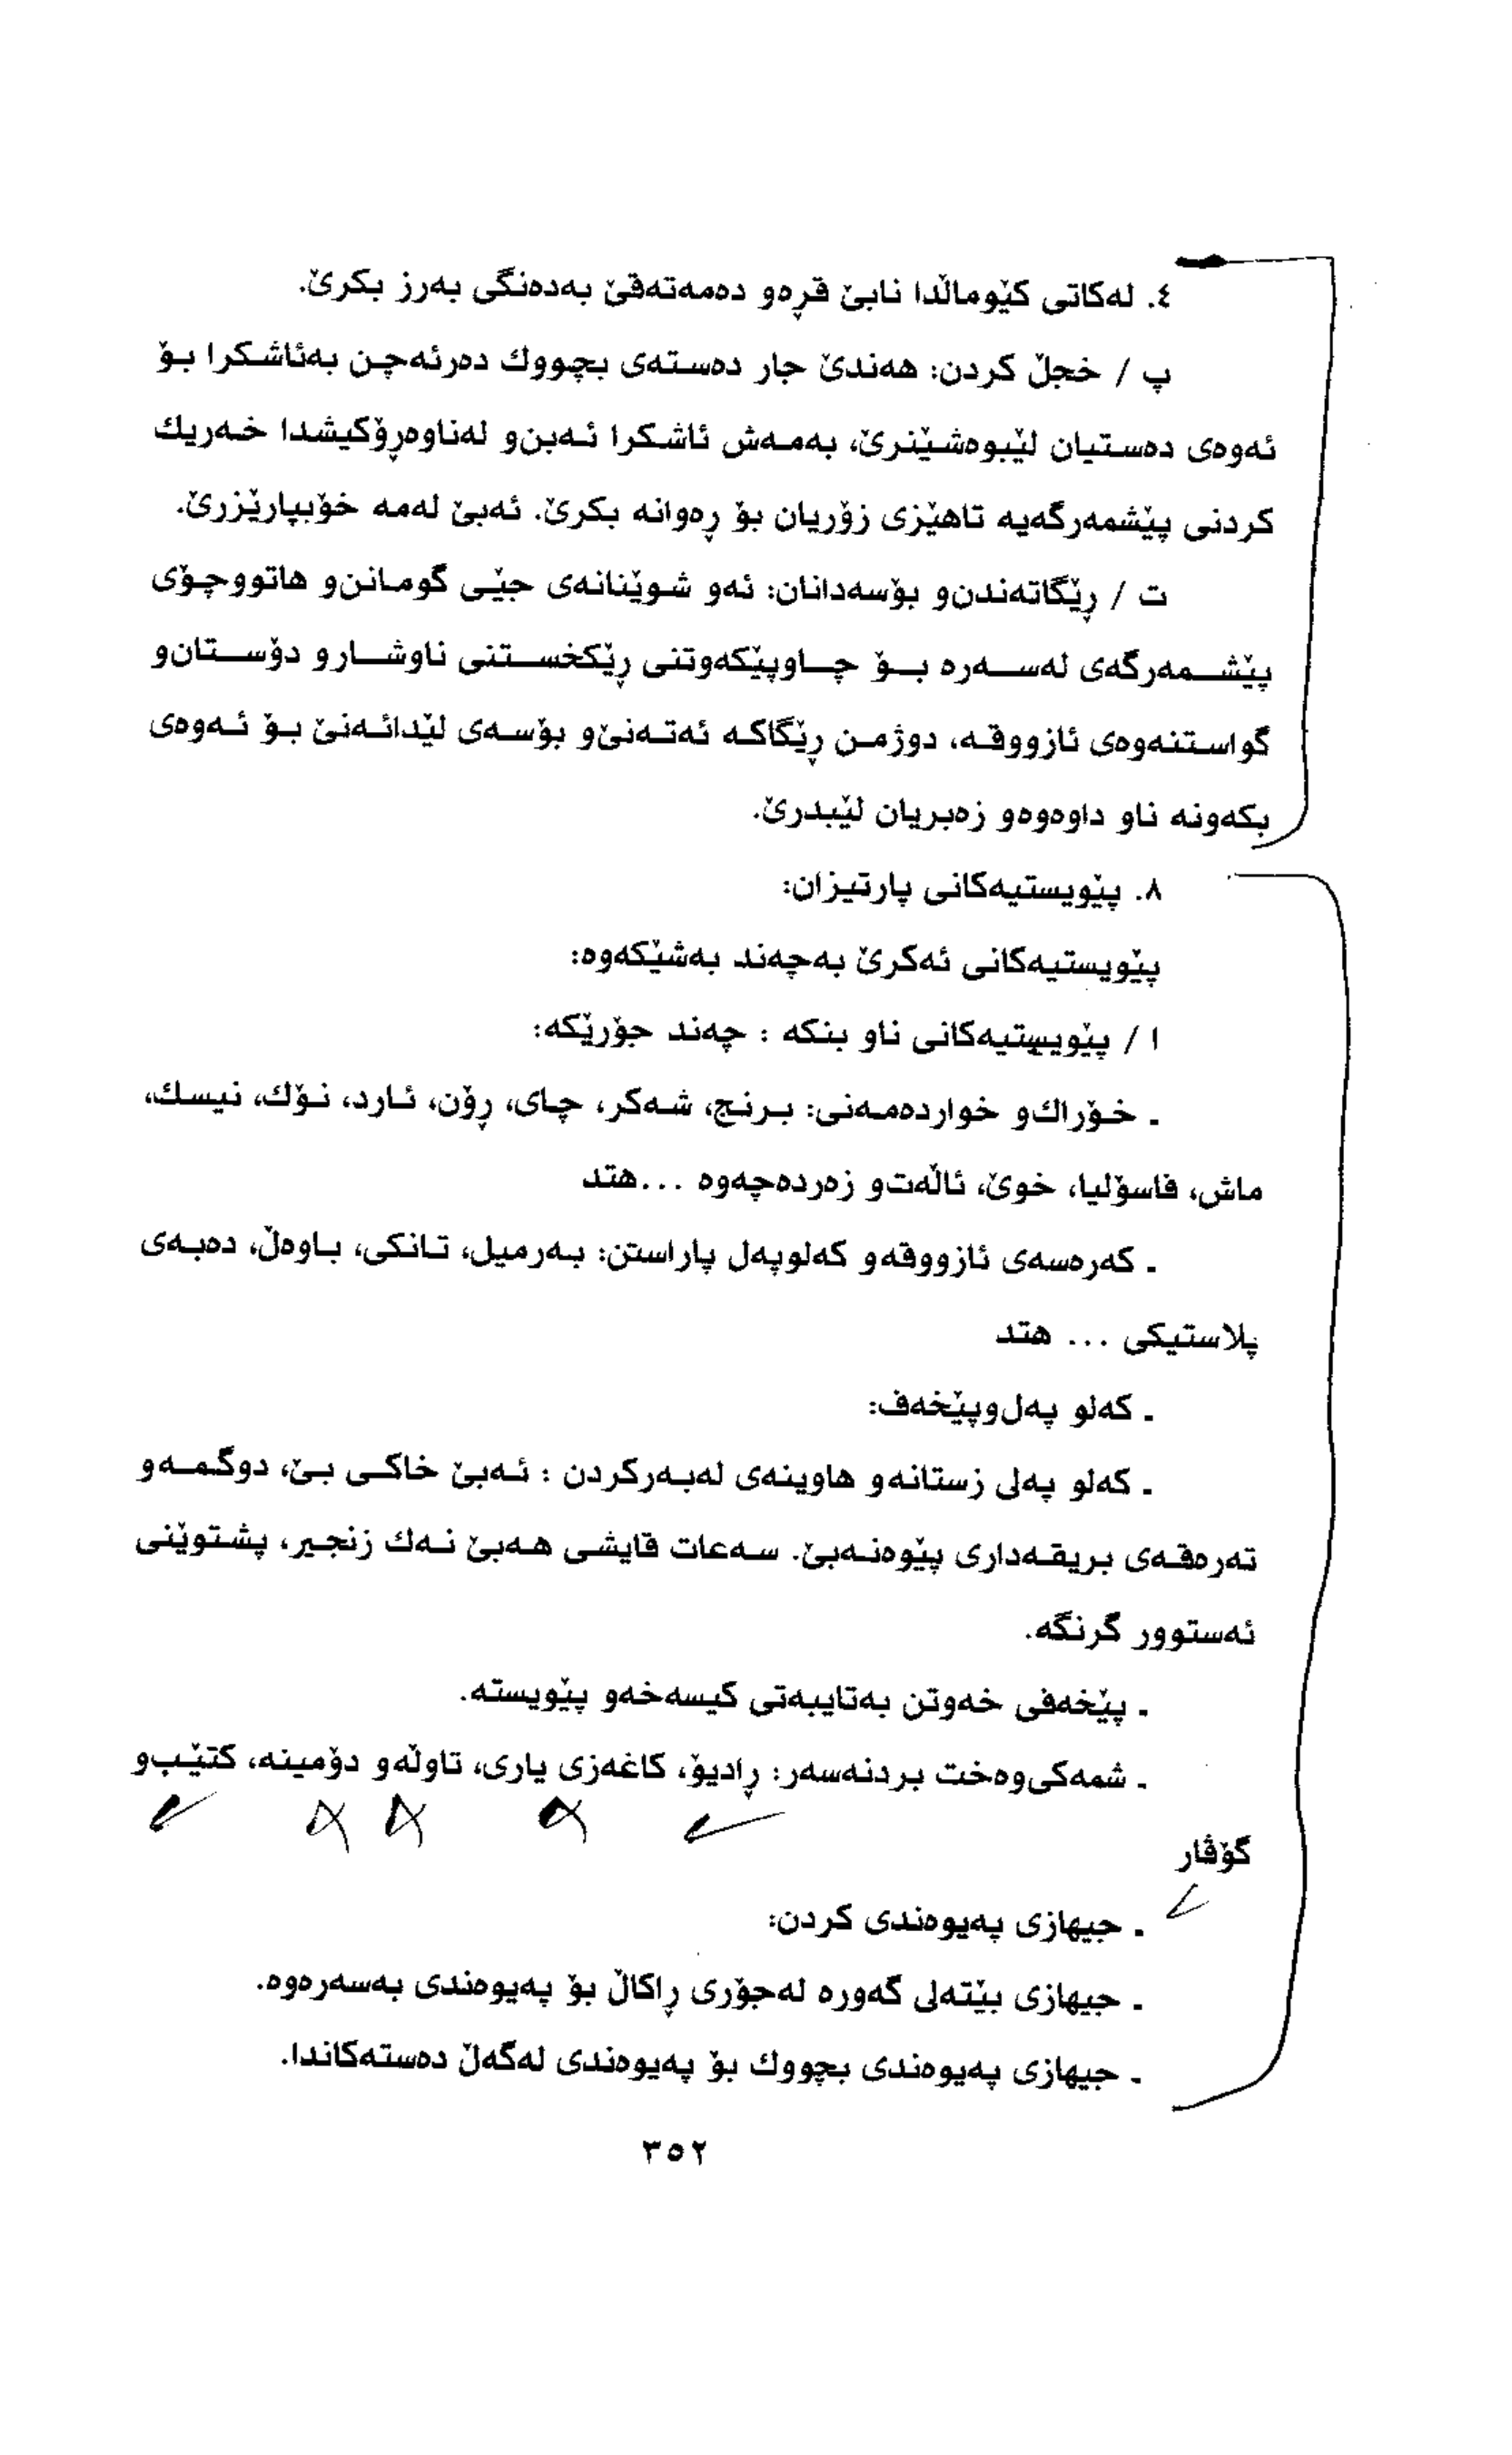 ٤. لەکاتی کێوماڵدا نابێ قڕەو دەمەتەقێ بەدەنگی بەرز بکرێ.
پ / خجڵ کردن: هەندێ جار دەستەی بچووك دەرئەچن بەئاشکرا بۆ
ئەوەی دەستیان لێبوەشێنرێ، بەمەش ئاشکرا ئەبن‌و لەناوەڕۆکیشدا خەریك
کردنی پێشمەرگەیە تاهێزی زۆریان بۆ ڕەوانە بکرێ. ئەبێ لەمە خۆبپارێزرێ.
ت / ڕێگاتەندن‌و بۆسەدانان: ئەو شوێنانەی جێی گومانن‌و هاتووچۆی
پێشمەرگەی لەسەرە بۆ چاوپێکەوتنی ڕێکخستنی ناوشارو دۆستان‌و
گواستنەوەی ئازووقە، دوژمن ڕێگاکە ئەتەنێ‌و بۆسەی لێدائەنێ بۆ ئەوەی
بکەونە ناو داوەوەو زەبریان لێبدرێ.
٨. پێویستیەکانی پارتیزان:
پێویستیەکانی ئەکرێ بەچەند بەشێکەوە:
ا / پێویستیەکانی ناو بنکە : چەند جۆرێکە:
ـ خۆراك‌و خواردەمەنی: برنج، شەکر، چای، ڕۆن، ئارد، نۆك، نیسك،
ماش، فاسۆلیا، خوێ، ئاڵەت‌و زەردەچەوە ...هتد
ـ کەرەسەی ئازووقەو کەلوپەل پاراستن: بەرمیل، تانکی، باوەڵ، دەبەی
پلاستیکی ... هتد
ـ کەلو پەل‌وپێخەف:
ـ کەلو پەلی زستانەو هاوینەی لەبەرکردن : ئەبێ خاکی بێ، دوگمەو
تەرەقەی بریقەداری پێوەنەبێ. سەعات قایشی هەبێ نەك زنجیر، پشتوێنی
ئەستوور گرنگە.
ـ پێخەفی خەوتن بەتایبەتی کیسەخەو پێویستە.
ـ شمەکی‌وەخت بردنەسەر: ڕادیۆ، کاغەزی یاری، تاوڵەو دۆمینە، کتێب‌و
گۆڤار
ـ جیهازی پەیوەندی کردن:
ـ جیهازی بێتەلی گەورە لەجۆری ڕاکاڵ بۆ پەیوەندی بەسەرەوە.
ـ جیهازی پەیوەندی بچووك بۆ پەیوەندی لەگەڵ دەستەکاندا.
٣٥٢